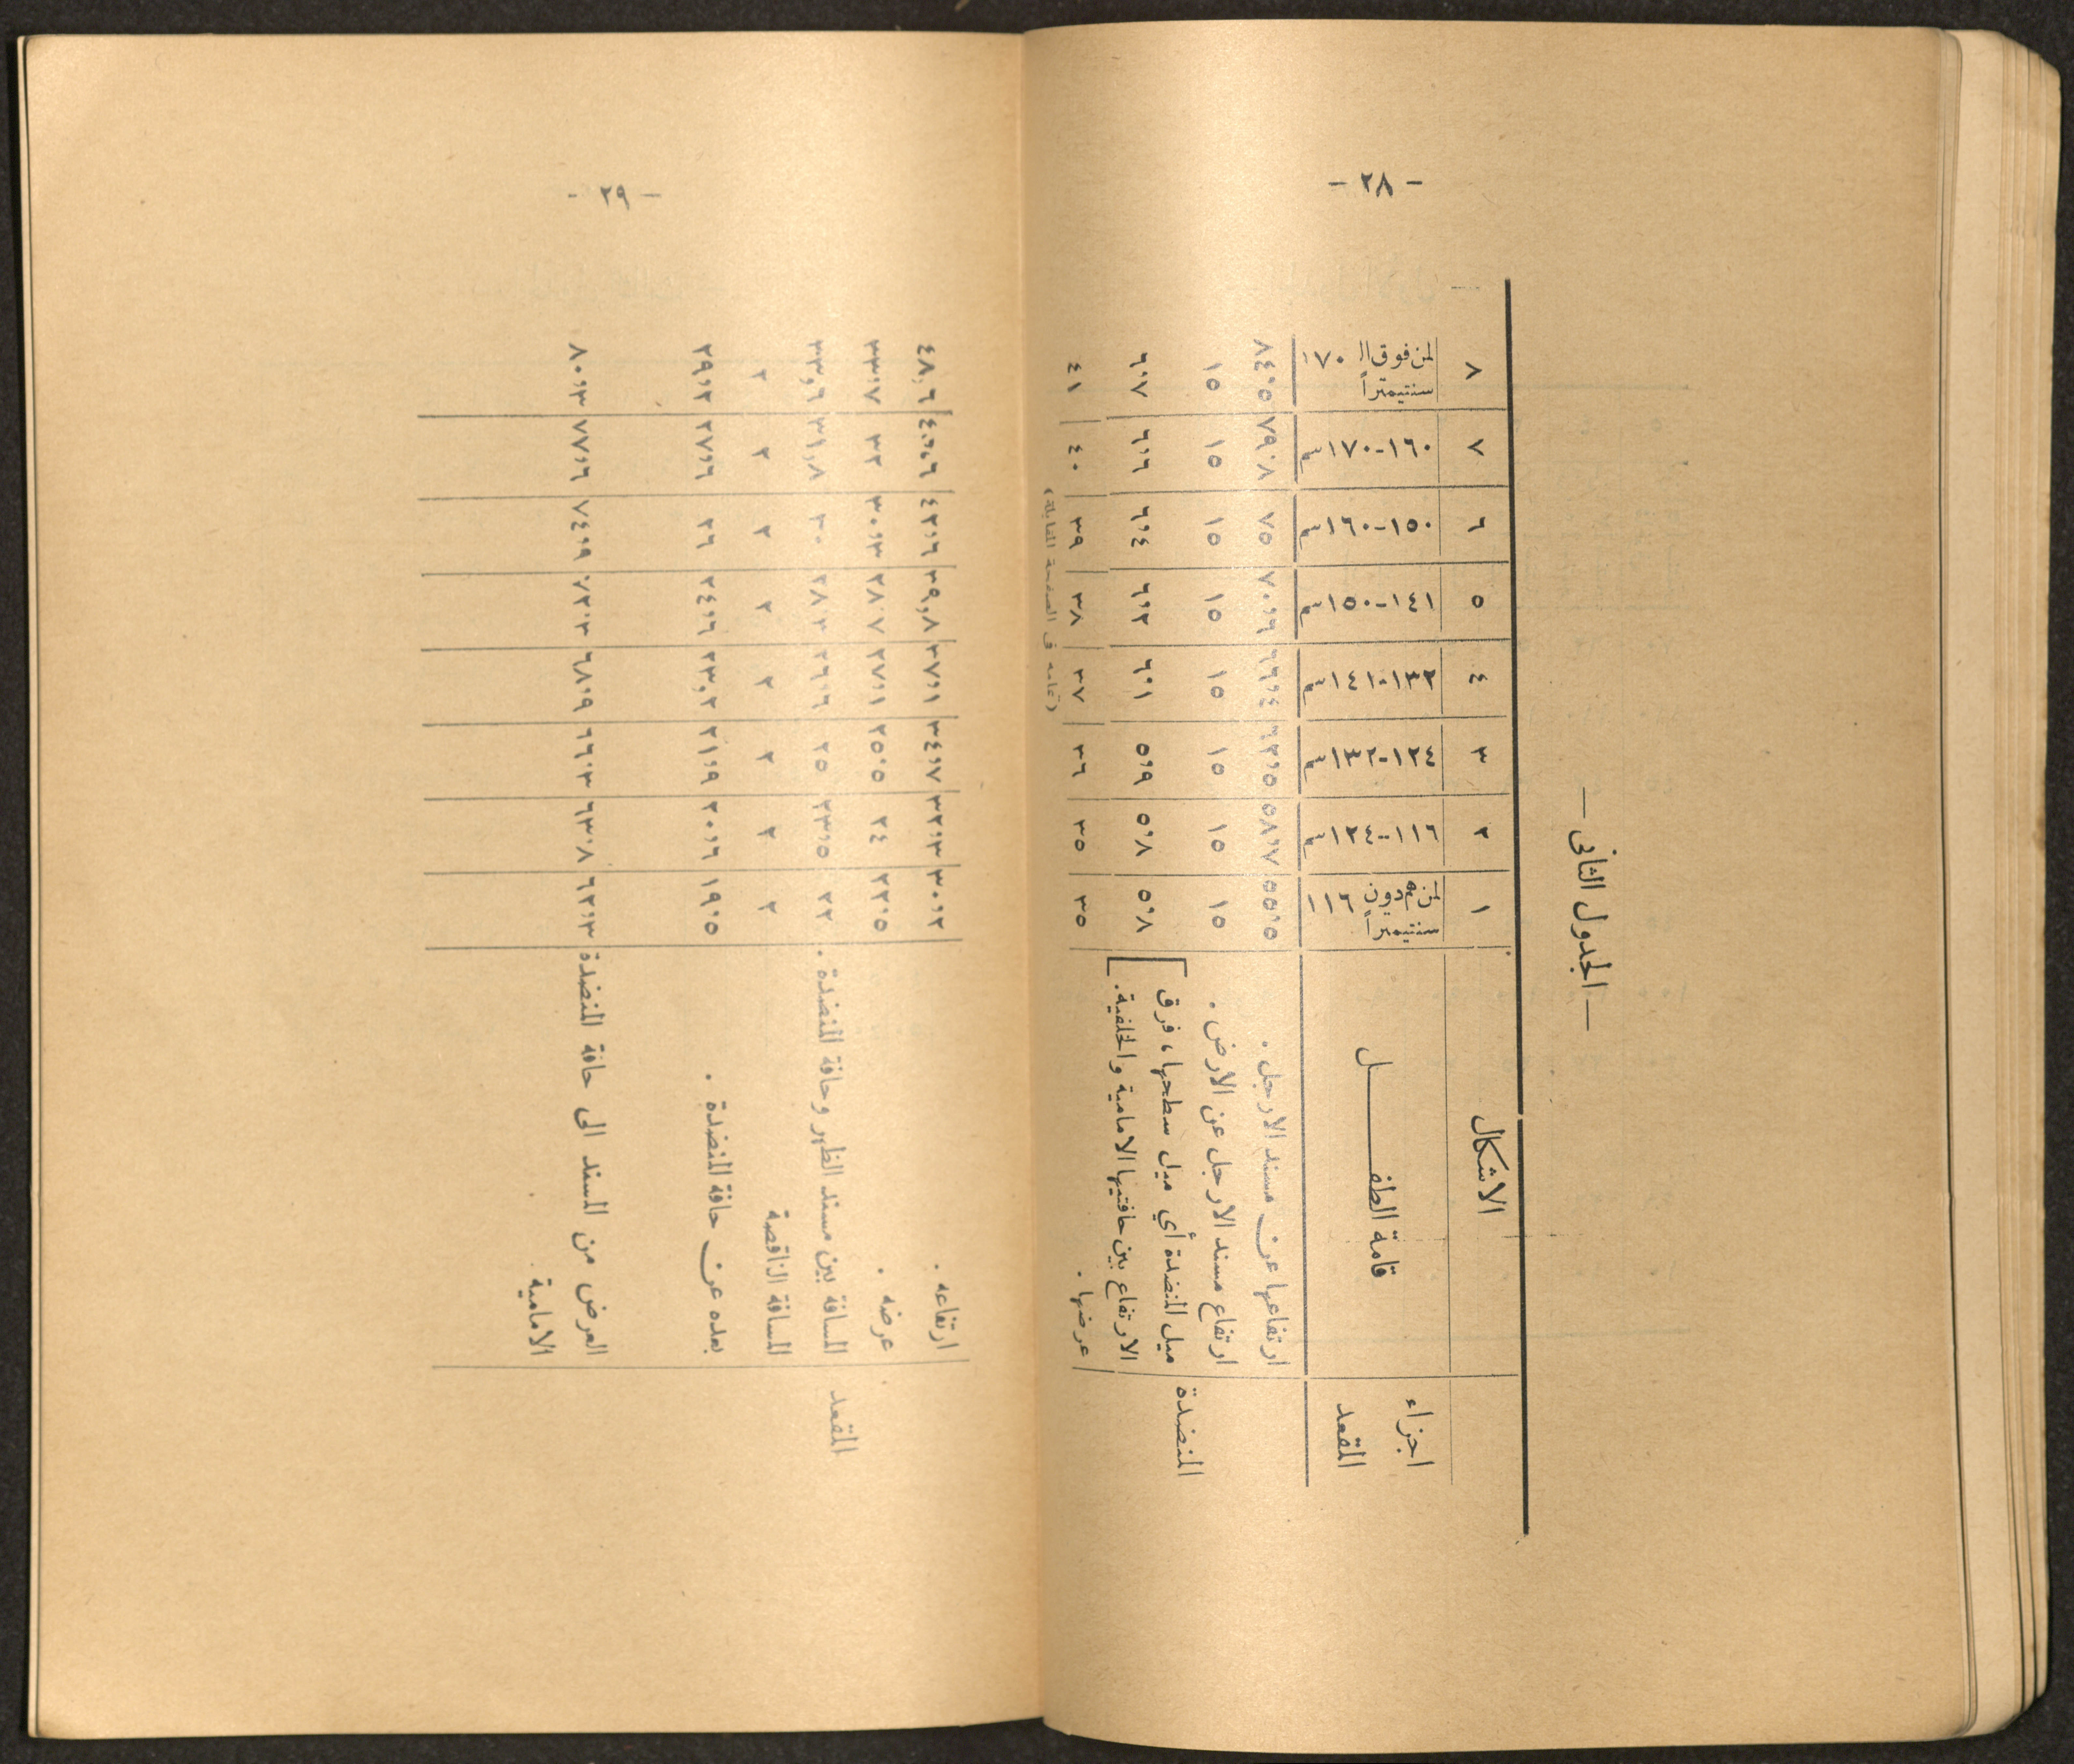 - ٢٨ -
— الجدول الثاني —
الاشكال ١ ٢ ٣ ٤ ٥ ٦ ٧ ٨
اجزاء المقعد قامة الطفـــل لمن هم دون ١١٦ سنتيمتراً ١١٦-١٢٤ سم ١٢٤-١٣٢ سم ١٣٢-١٤١ سم ١٤١-١٥٠ سم ١٥٠-١٦٠ سم ١٦٠-١٧٠ سم لمن فوق الـ ١٧٠ سنتيمتراً
ارتفاعها عن مسند الارجل . ٥٥,٥ ٥٨,٧ ٦٢,٥ ٦٦,٤ ٧٠,٦ ٧٥ ٧٩,٨ ٨٤,٥
المنضدة ارتفاع مسند الارجل عن الارض . ١٥ ١٥ ١٥ ١٥ ١٥ ١٥ ١٥ ١٥
ميل المنضدة أي ميل سطحها ، فرق
الارتفاع بين حافتيها الامامية والخلفية. ٥,٨ ٥,٨ ٥,٩ ٦,١ ٦,٢ ٦,٤ ٦,٦ ٦,٧
عرضها . ٣٥ ٣٥ ٣٦ ٣٧ ٣٨ ٣٩ ٤٠ ٤١
( تمامه في الصفحة المقابلة )
- ٢٩ -
ارتفاعه . ٣٠,٢ ٣٢,٣ ٣٤,٧ ٣٧,١ ٣٩,٨ ٤٢,٦ ٤٠,٠٦ ٤٨,٦
عرضه . ٢٢,٥ ٢٤ ٢٥,٥ ٢٧,١ ٢٨,٧ ٣٠,٣ ٣٢ ٣٣,٧
المقعد المسافة بين مسند الظهر وحافة المنضدة . ٢٢ ٢٣,٥ ٢٥ ٢٦,٦ ٢٨,٣ ٣٠ ٣١,٨ ٣٣,٦
المسافة الناقصة ٢ ٢ ٢ ٢ ٢ ٢ ٢ ٢
بعده عن حافة المنضدة . ١٩,٥ ٢٠,٦ ٢١,٩ ٢٣,٢ ٢٤,٦ ٢٦ ٢٧,٦ ٢٩,٢
العرض من المسند الى حافة المنضدة ٦٢,٣ ٦٣,٨ ٦٦,٣ ٦٨,٩ ٧٢,٣ ٧٤,٩ ٧٧,٦ ٨٠,٣
الامامية .